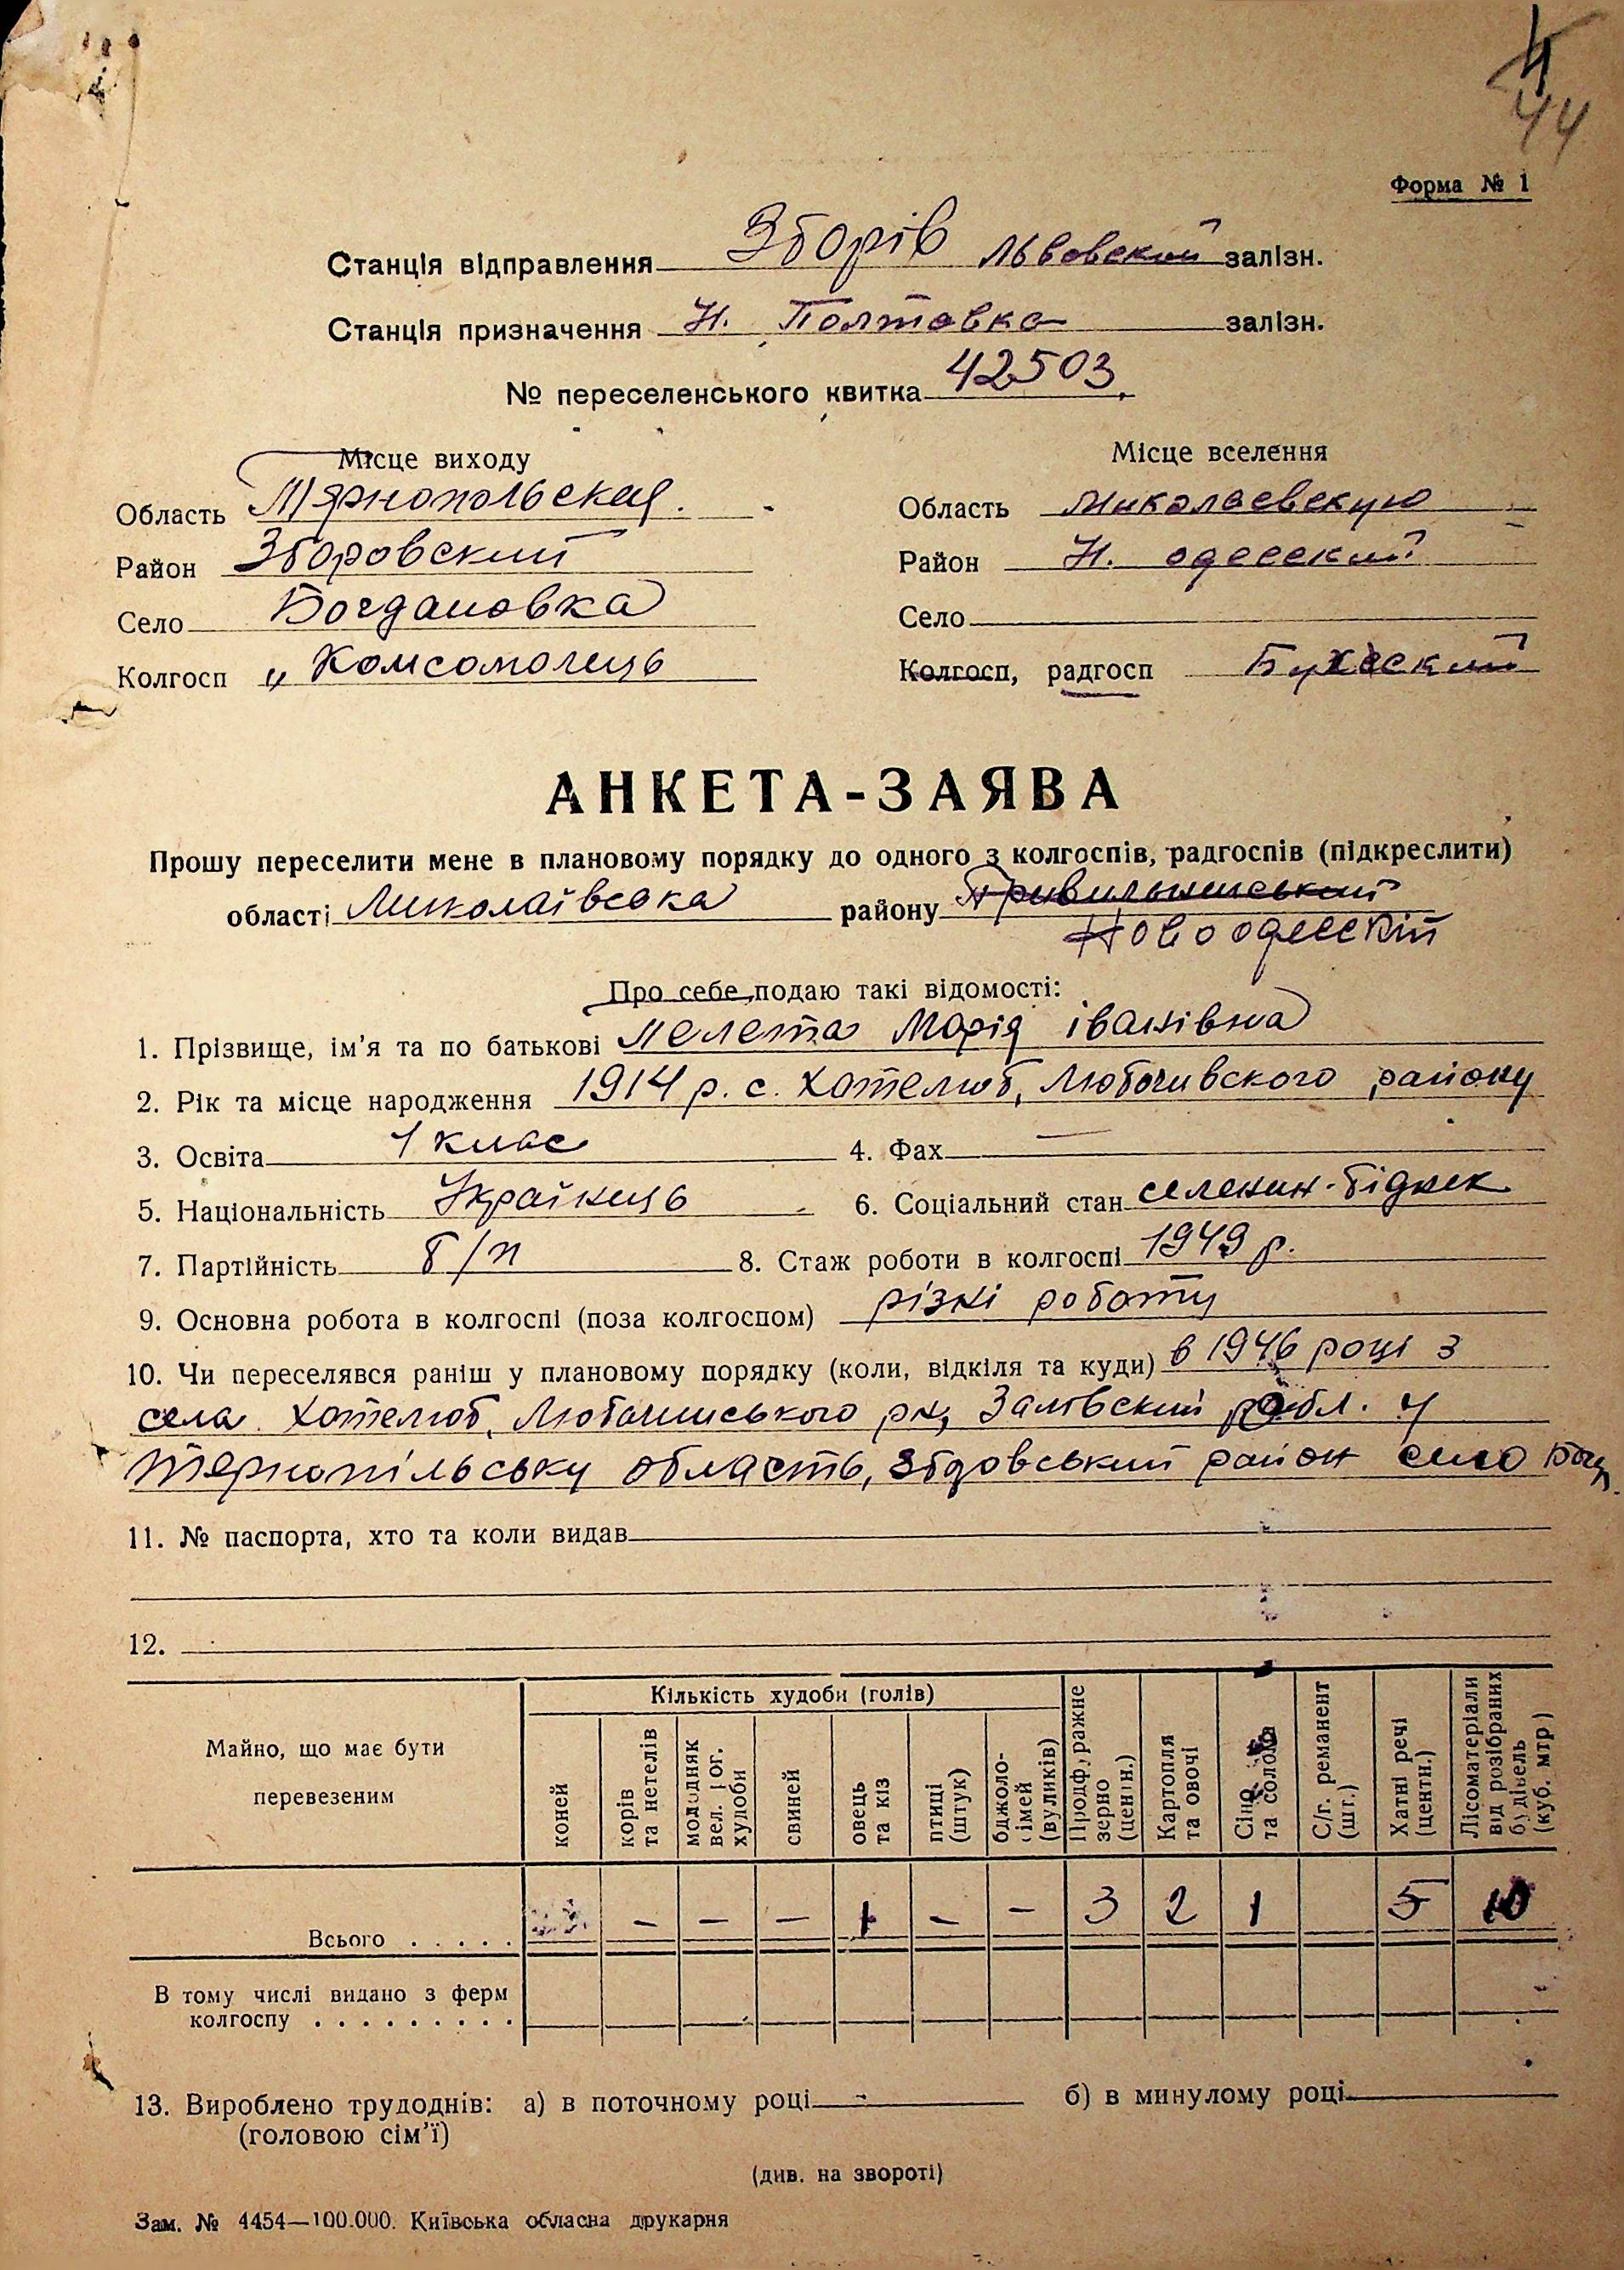 44
Форма № 1
Станція відправлення Зборів Львовской залізн.
Станція призначення Н. Полтавка залізн.
№ переселенського квитка 42503
Місце виходу
Область Тярнопольская.
Район Зборовский
Село Богдановка
Колгосп „Комсомолець
Місце вселення
Область Миколаевскую
Район Н. одесский
Село
Колгосп, радгосп
АНКЕТА-ЗАЯВА
Прошу переселити мене в плановому порядку до одного з колгоспів, радгоспів (підкреслити)
області Миколаївська району
Новоодесскій
Про себе подаю такі відомості:
1. Прізвище, ім’я та по батькові Пелета Марія іванівна
2. Рік та місце народження 1914 р. с. Хотелюб, Любочивского району
3. Освіта 1 клас 4. Фах —
5. Національність Українць 6. Соціальний стан селенин-бідняк
7. Партійність б/п 8. Стаж роботи в колгоспі 1949 р.
9. Основна робота в колгоспі (поза колгоспом) різні роботу
10. Чи переселявся раніш у плановому порядку (коли, відкіля та куди) в 1946 році з
села Хотелюб, рн, обл. у
тернопільську область, район село
11. № паспорта, хто та коли видав
12.
Майно, що має бути перевезеним
Кількість худоби (голів)
коней
корів та нетелів
молодняк вел. рог. худоби
свиней
овець та кіз
птиці (штук)
бджоло-сімей (вуликів)
Продф,ражне зерно (центн.)
Картопля та овочі
Сіно та солома
С/г. реманент (шт.)
Хатні речі (центн.)
Лісоматеріали від розібраних будівель (куб. мтр)
Всього . . . . . – – – 1 – – 3 2 1 5 10
В тому числі видано з ферм
колгоспу . . . . . . . . .
13. Вироблено трудоднів: а) в поточному році - б) в минулому році
(головою сім’ї)
(див. на звороті)
Зам. № 4454—100.000. Київська обласна друкарня